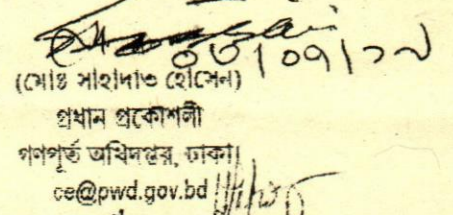 (মোঃ সাহাদাত হোসেন)
প্রধান প্রকৌশলী
গণপূর্ত অধিদপ্তর, ঢাকা।
ce@pwd.gov.bd